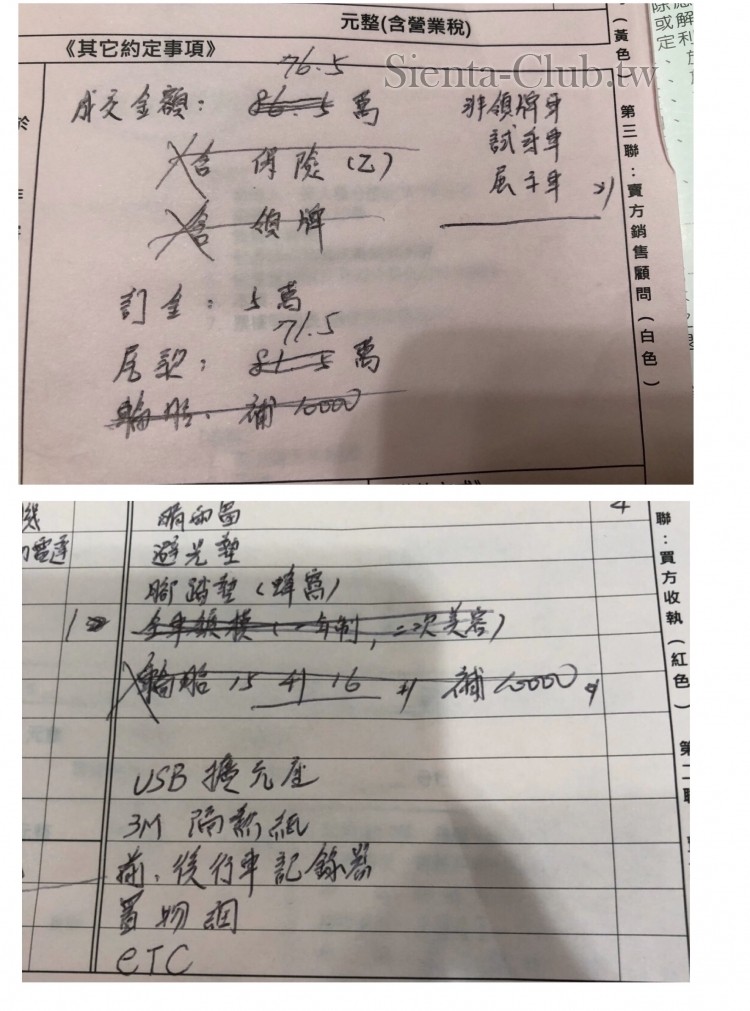 元整(含營業稅)
《其它約定事項》
Sienta-Club.tw
76.5
成交金額：86.5萬
含 保險(乙)
含 領牌
非領牌車
試乘車
展示車
訂金：5萬
71.5
尾款：81.5萬
輪胎、補10000
(黃色)
第三聯：賣方銷售顧問(白色)
除或定、
應解利
晴雨窗
避光墊
腳踏墊(蜂窩)
全車鍍膜(一年制，二次美容)
輪胎 15 升 16 補10000
USB 擴充座
3M 隔熱紙
前、後行車記錄器
置物網
eTC
4
聯：買方收執(紅色)
第二聯